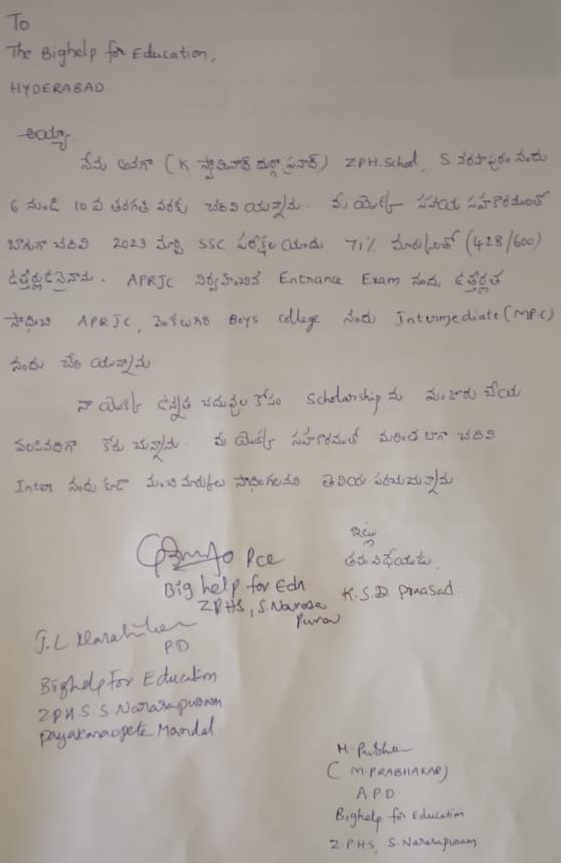 To
The Bighelp for Education,
HYDERABAD
అయ్యా
నేను అనగా (K. స్వామినాథ్ దుర్గా ప్రసాద్) ZPH. School, S నరసాపురం నందు
6 నుండి 10 వ తరగతి వరకు చదివి యున్నాను. మీ యొక్క సహాయ సహకారములతో
బాగుగా చదివి 2023 మార్చి SSC పరీక్షల యందు 71% మార్కులతో (428/600)
ఉత్తీర్ణుడనైనాను. APRJC నిర్వహించిన Entrance Exam నందు ఉత్తీర్ణత
సాధించి APRJC, వెంకటగిరి Boys College నందు Intermediate (MPC)
నందు చేరి యున్నాను
నా యొక్క ఉన్నత చదువుల కోసం Scholarship ను మంజూరు చేయ
వలసినదిగా కోరుచున్నాను. మీ యొక్క సహకారముతో మరింత బాగా చదివి
Inter నందు కూడా మంచి మార్కులు సాధించగలనని తెలియ పరచుచున్నాను
ఇట్లు
తమ విధేయుడు,
K.S.D. Prasad
PCE
Big help for Edn
ZPHS, S. Narasa
Puram
PD
Bighelp For Education
ZPHS. S. Narasapuram
Payakaraopeta Mandal
M. Prabhakar
(M. PRABHAKAR)
A.P.D.
Bighelp for Education
ZPHS, S. Narasapuram